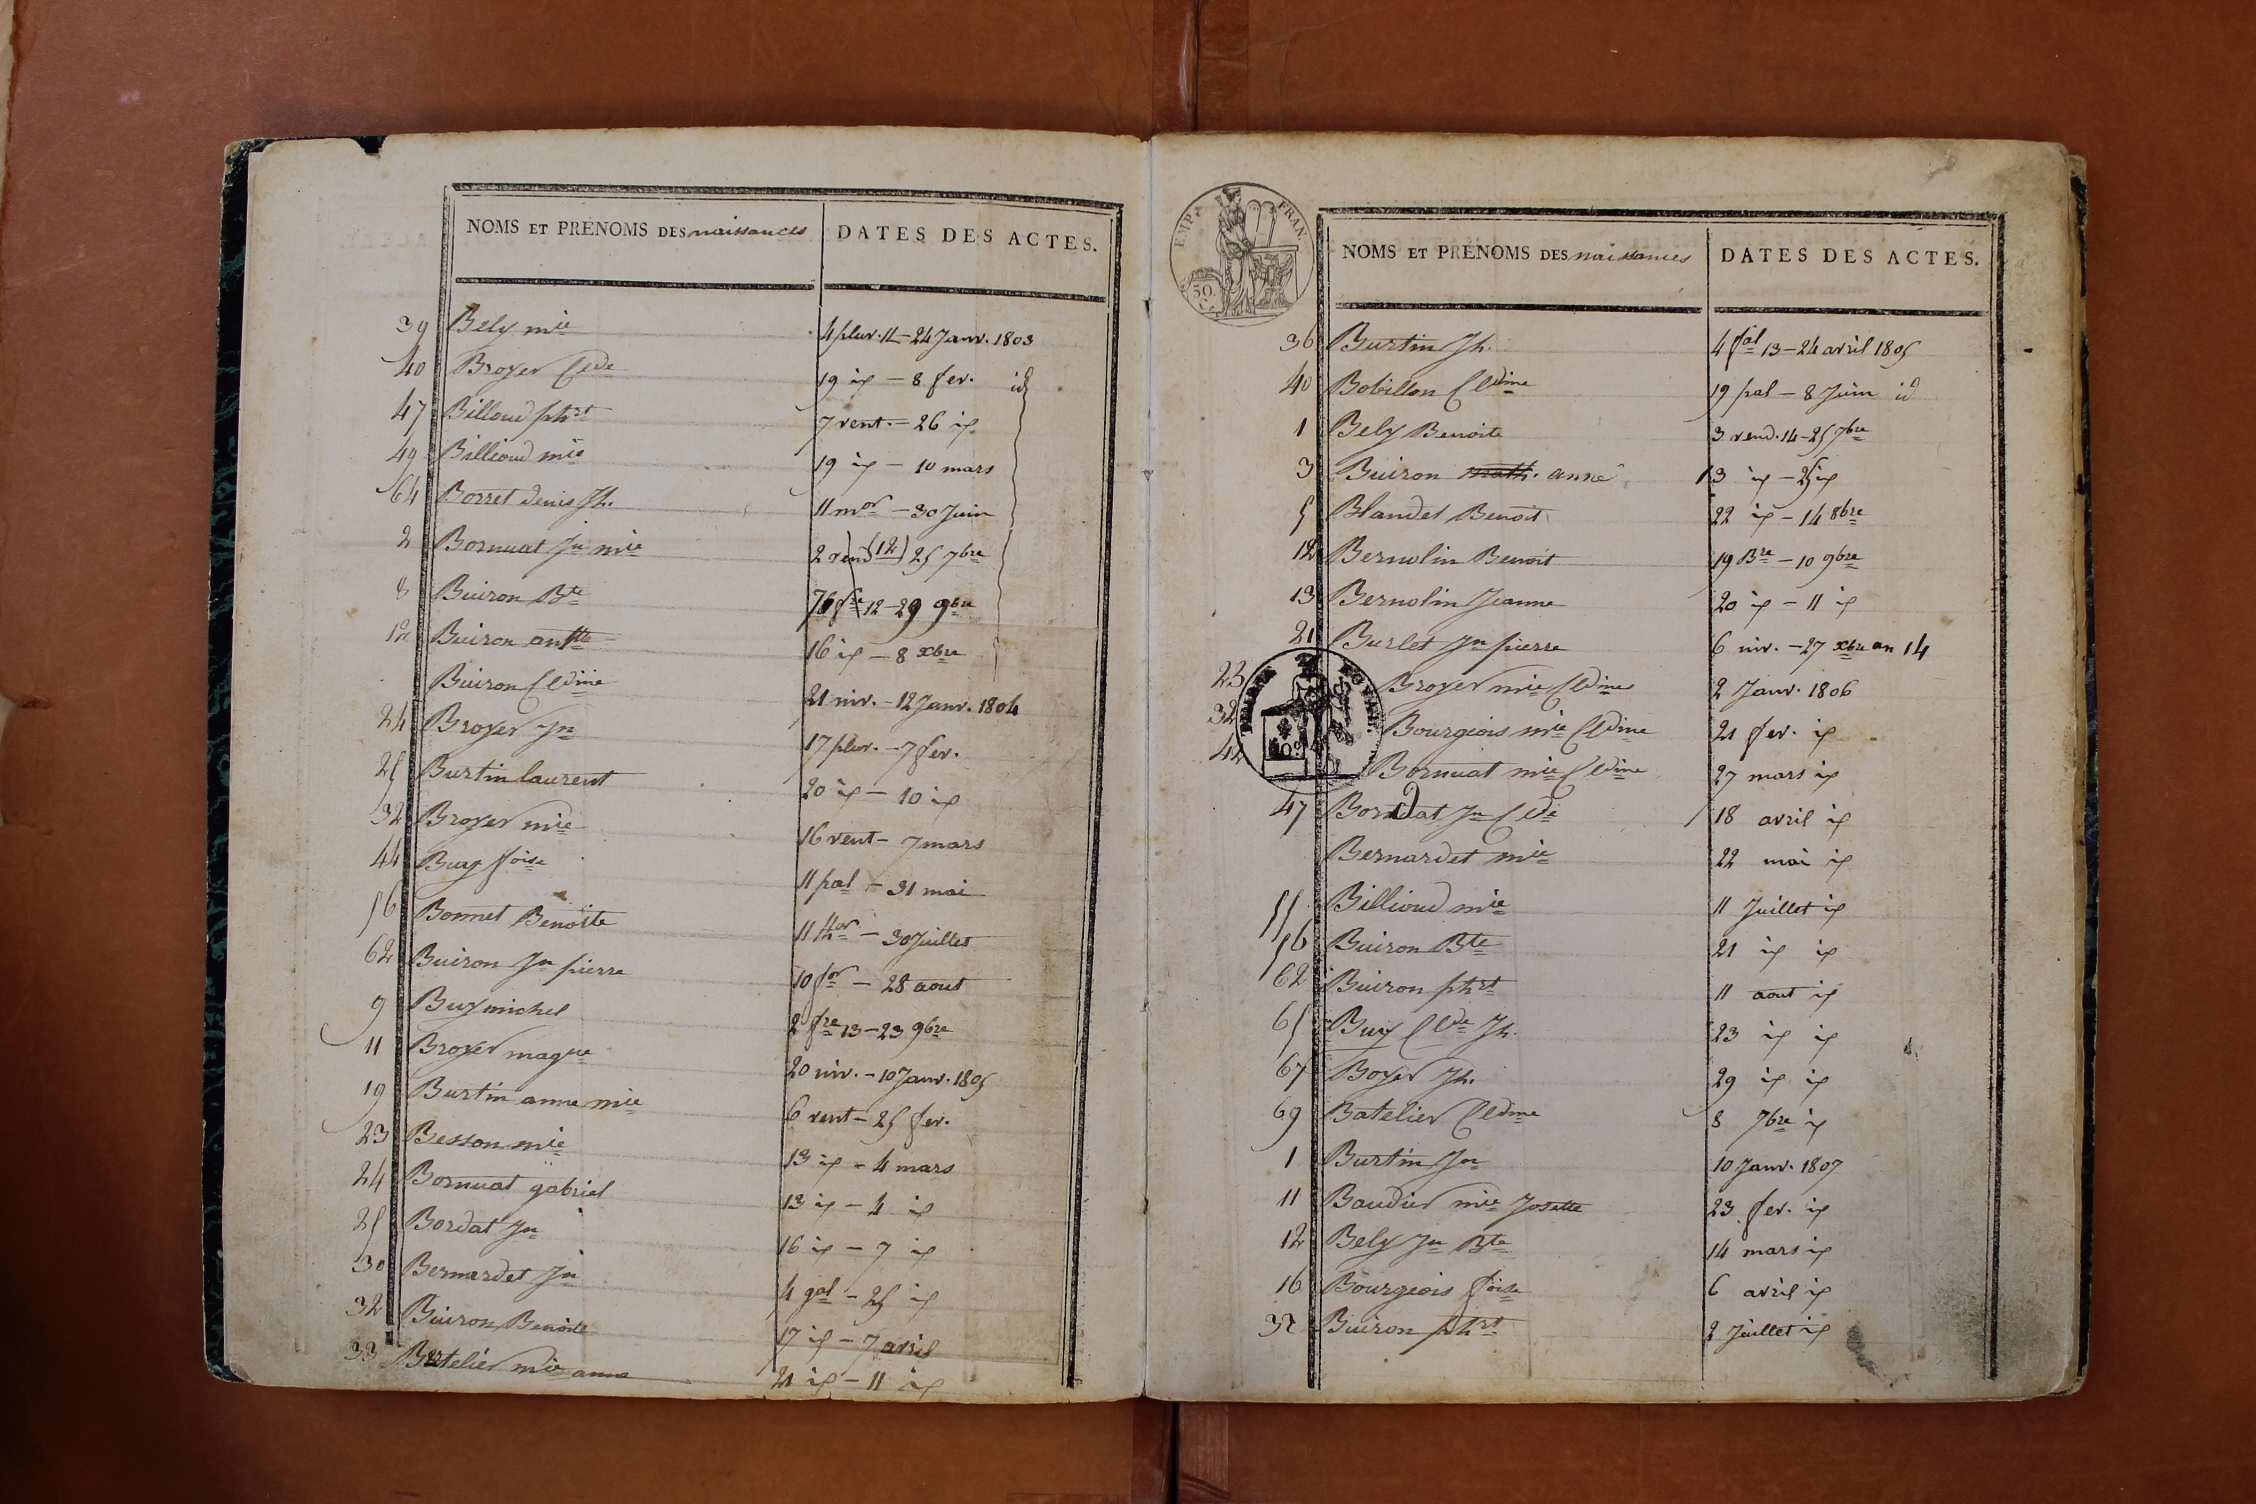 NOMS ET PRÉNOMS DES naissances DATES DES ACTES.
39 Bely mie 4 pluv. 11 - 24 Janv. 1803
40 Broyer Clde 19 id - 8 fev. id
47 Billoud phrt 7 vent. - 26 id
49 Billioud mie 19 id - 10 mars
64 Borret denis Jh. 11 mor - 30 Juin
2 Bornuat Jn mie 2 vend (12) 25 7bre
8 Buiron Bte fre 12 - 29 9bre
12 Buiron antte 16 id - 8 xbre
Buiron Cldine 21 niv. - 12 Janv. 1804
24 Broyer Jn 17 pluv. - 7 fev.
25 Burtin laurent 20 id - 10 id
32 Broyer mie 16 vent - 7 mars
44 Buy foise 11 pal - 31 mai
56 Bonnet Benoite 11 thor - 30 Juillet
62 Buiron Jn pierre 10 for - 28 aout
9 Buy michel 2 fre 13 - 23 9bre
11 Broyer magne 20 niv. - 10 Janv. 1805
19 Burtin anne mie 6 vent - 25 fev.
23 Besson mie 13 id - 4 mars
24 Bornuat gabriel 13 id - 4 id
25 Bordat Jn 16 id - 7 id
30 Bernardet Jn 4 gal - 25 id
32 Buiron Benoite 17 id - 7 avril
33 Batelier mie anne 21 id - 11 id
EMP. FRAN.
50 C.
NOMS ET PRÉNOMS DES naissances DATES DES ACTES.
36 Burtin Jh. 4 fal 13 - 24 avril 1805
40 Bobillon Cldine 19 pal - 8 Juin id
1 Bely Benoite 3 vend. 14 - 25 7bre
3 Buiron math. anne 3 id - 25 id
5 Blandet Benoit 22 id - 14 8bre
12 Bernolin Benoit 19 Bre - 10 9bre
13 Bernolin Jeanne 20 id - 11 id
21 Burlet Jn pierre 6 niv. - 27 xbre an 14
23 Broyer mie Cldine 2 Janv. 1806
32 Bourgeois mie Cldine 21 fev. id
42 Bornuat mie Cldine 27 mars id
47 Bordat Jn Clde 18 avril id
Bernardet mie 22 mai id
55 Billioud mie 11 Juillet id
56 Buiron Bte 21 id id
62 Buiron phrt 11 aout id
65 Buy Clde Jh. 23 id id
67 Boyer Jh. 29 id id
69 Batelier Cldine 8 7bre id
1 Burtin Jn 10 Janv. 1807
11 Baudier mie Josette 23 fev. id
12 Bely Jn Bte 14 mars id
16 Bourgeois foise 6 avril id
32 Buiron phrt 2 Juillet id